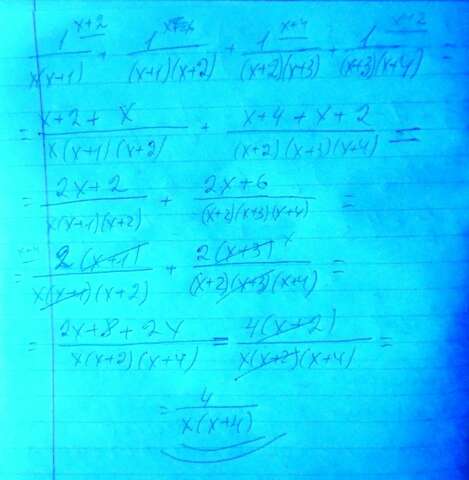 1^{x+2}/(x(x+1)) + 1^{x}/((x+1)(x+2)) + 1^{x+4}/((x+2)(x+3)) + 1^{x+2}/((x+3)(x+4)) =
= (x+2+x)/(x(x+1)(x+2)) + (x+4+x+2)/((x+2)(x+3)(x+4)) =
= (2x+2)/(x(x+1)(x+2)) + (2x+6)/((x+2)(x+3)(x+4)) =
= 2(x+1)/(x(x+1)(x+2)) + 2(x+3)^{x}/((x+2)(x+3)(x+4)) =
= (2x+8+2x)/(x(x+2)(x+4)) = 4(x+2)/(x(x+2)(x+4)) =
= 4/(x(x+4))